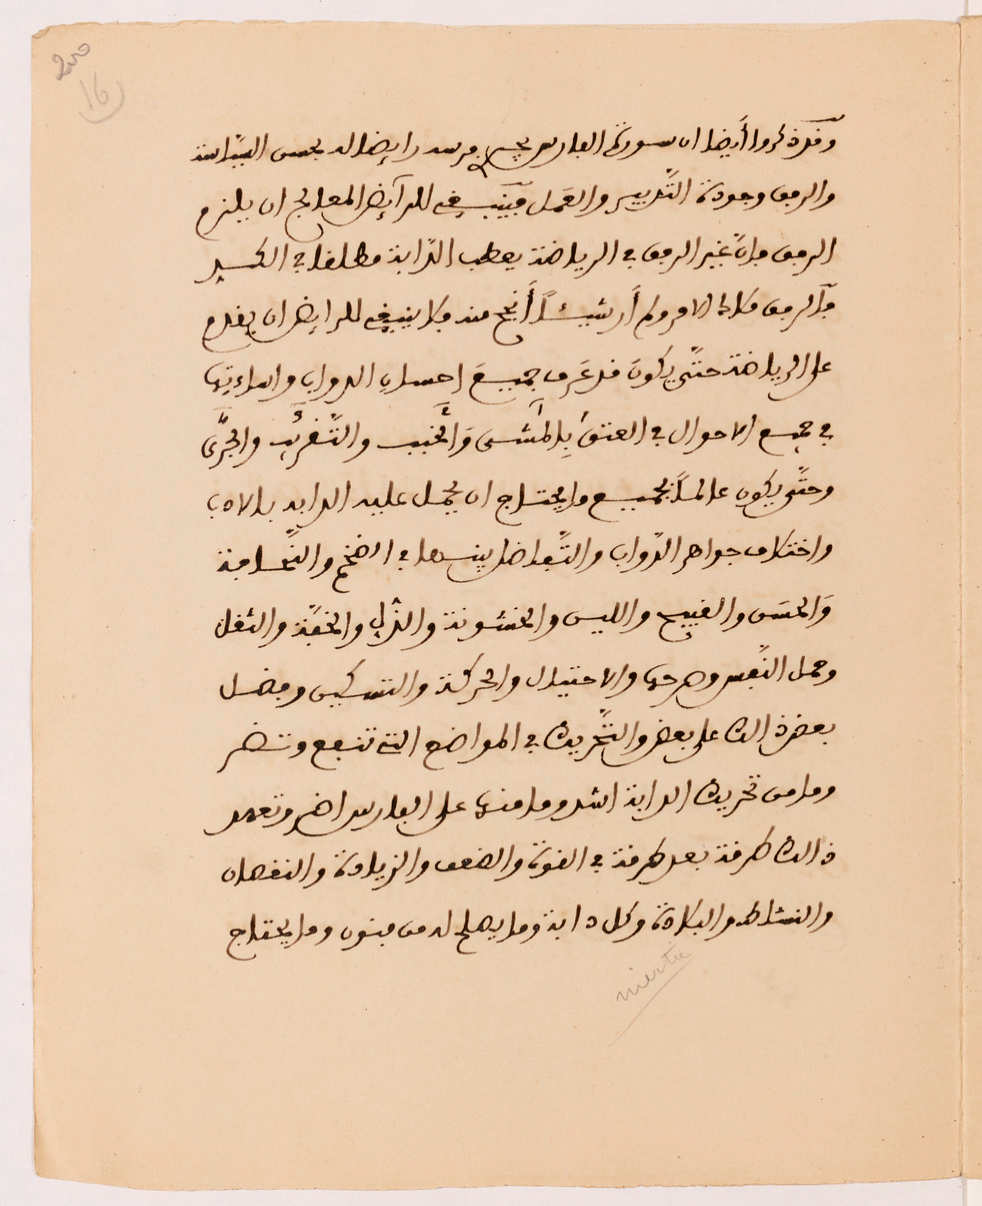 16
وقد ذكروا أيضا ان سورة الفارس فرسه رايضا له بحسن السّياسة
والرفق وجودة التّدبير والعَمل فينبغي للرآيض المعالج ان يلزم
الرفق فانّ غير الرفق في الرياضة يعطب الدّابة مطلقا في الكسر
فآلرفق ملاك الامر ولم أر شيئاً أنجح منه فلا ينبغي للرايض ان يقدم
على الرياضة حتّى يكونَ قد عَرف جميعَ احسان الدواب واساءتها
في جميع الاحوال في العنق والمَشى وَالخبب والتّقريب والجرْى
وحتّى يكون عالماً بجميع ما يحتاج ان يحمل عليه الدابه بالاداب
واختلاف جواهر الدّواب والتّفاضل بينها في الضخم والنّحافة
وَالحسَن والقبيح واللين والخشونة والذّل والخفّة والثقل
وحمل النّفس وهرجها والاحتيال والحركة والتسكين وفضل
بعض ذالك على بعض والتّحريك في المواضع التي تنفع وتضر
وما من تحريك الدابة اشد وما منها على الفارس اضر وتعهد
ذالك طرفة بعد طرفة في القوة والضعف والزيادة والنقصان
والنشاط والبلادة وكل دابة وما يصلح له من فنون وما يحتاج
inertie